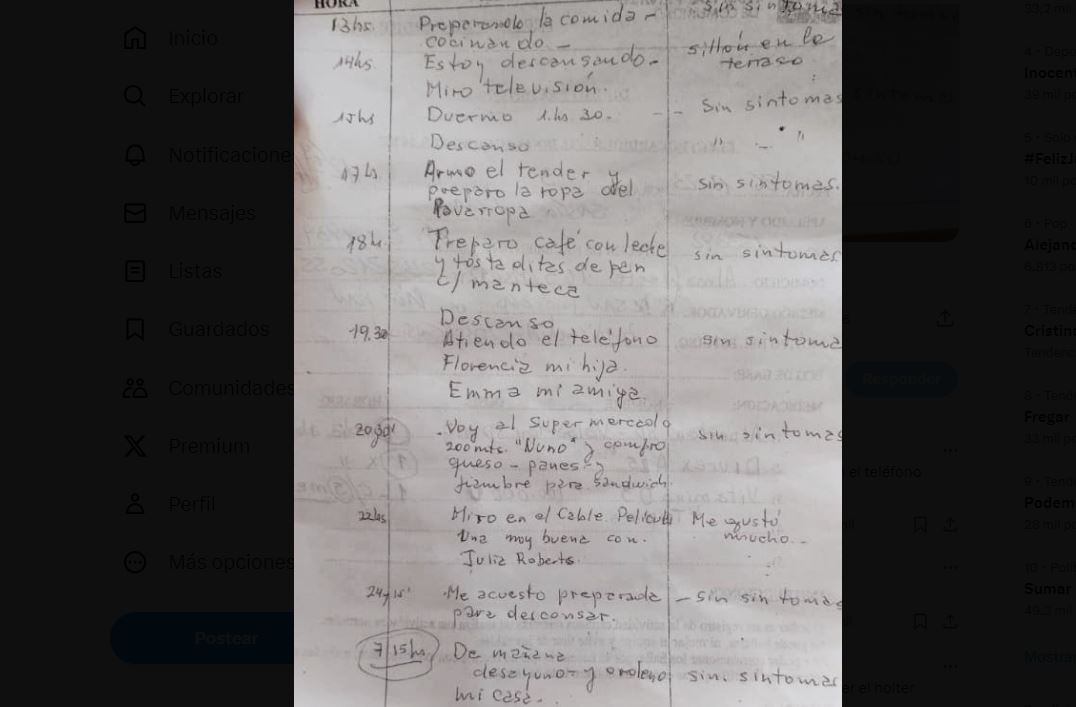 HORA
13hs. Preparando la comida - Sin síntomas
cocinando -
14hs Estoy descansando - sillón en la
terraso
Miro televisión.
15hs Duermo 1.hs 30. -- Sin sintomas
Descanso " - "
17hs Armo el tender y
preparo la ropa del sin sintomas.
lavarropa
18h. Preparo café con leche sin sintomas
y tostaditas de pan
c/ manteca
Descanso
19,30 Atiendo el teléfono sin sintoma
Florencia mi hija.
Emma mi amiga
2030' .Voy al Supermercado sin sintomas
200mts. "Nuno" y compro
queso - panes - y
fiambre para sandwich.
22hs Miro en el Cable Pelicula Me gustó
Una muy buena con. mucho --
Julia Roberts.
24,15' .Me acuesto preparada - sin sintomas
para descansar.
7,15hs De mañana
desayuno - y ordeno sin sintomas
mi casa. -
Inicio
Explorar
Notificaciones
Mensajes
Listas
Guardados
Comunidades
Premium
Perfil
Más opciones
Postear
Responder
el teléfono
er el holter
33,2 mil
4 · Depo
Inocent
39 mil po
5 · Solo
#FelizJ
10 mil po
6 · Pop
Alejand
6.813 po
7 · Tende
Cristin
Tendenc
8 · Tende
Fregar
33 mil po
9 · Tende
Podem
28 mil po
10 · Polí
Sumar
49,3 mil
Mostrar